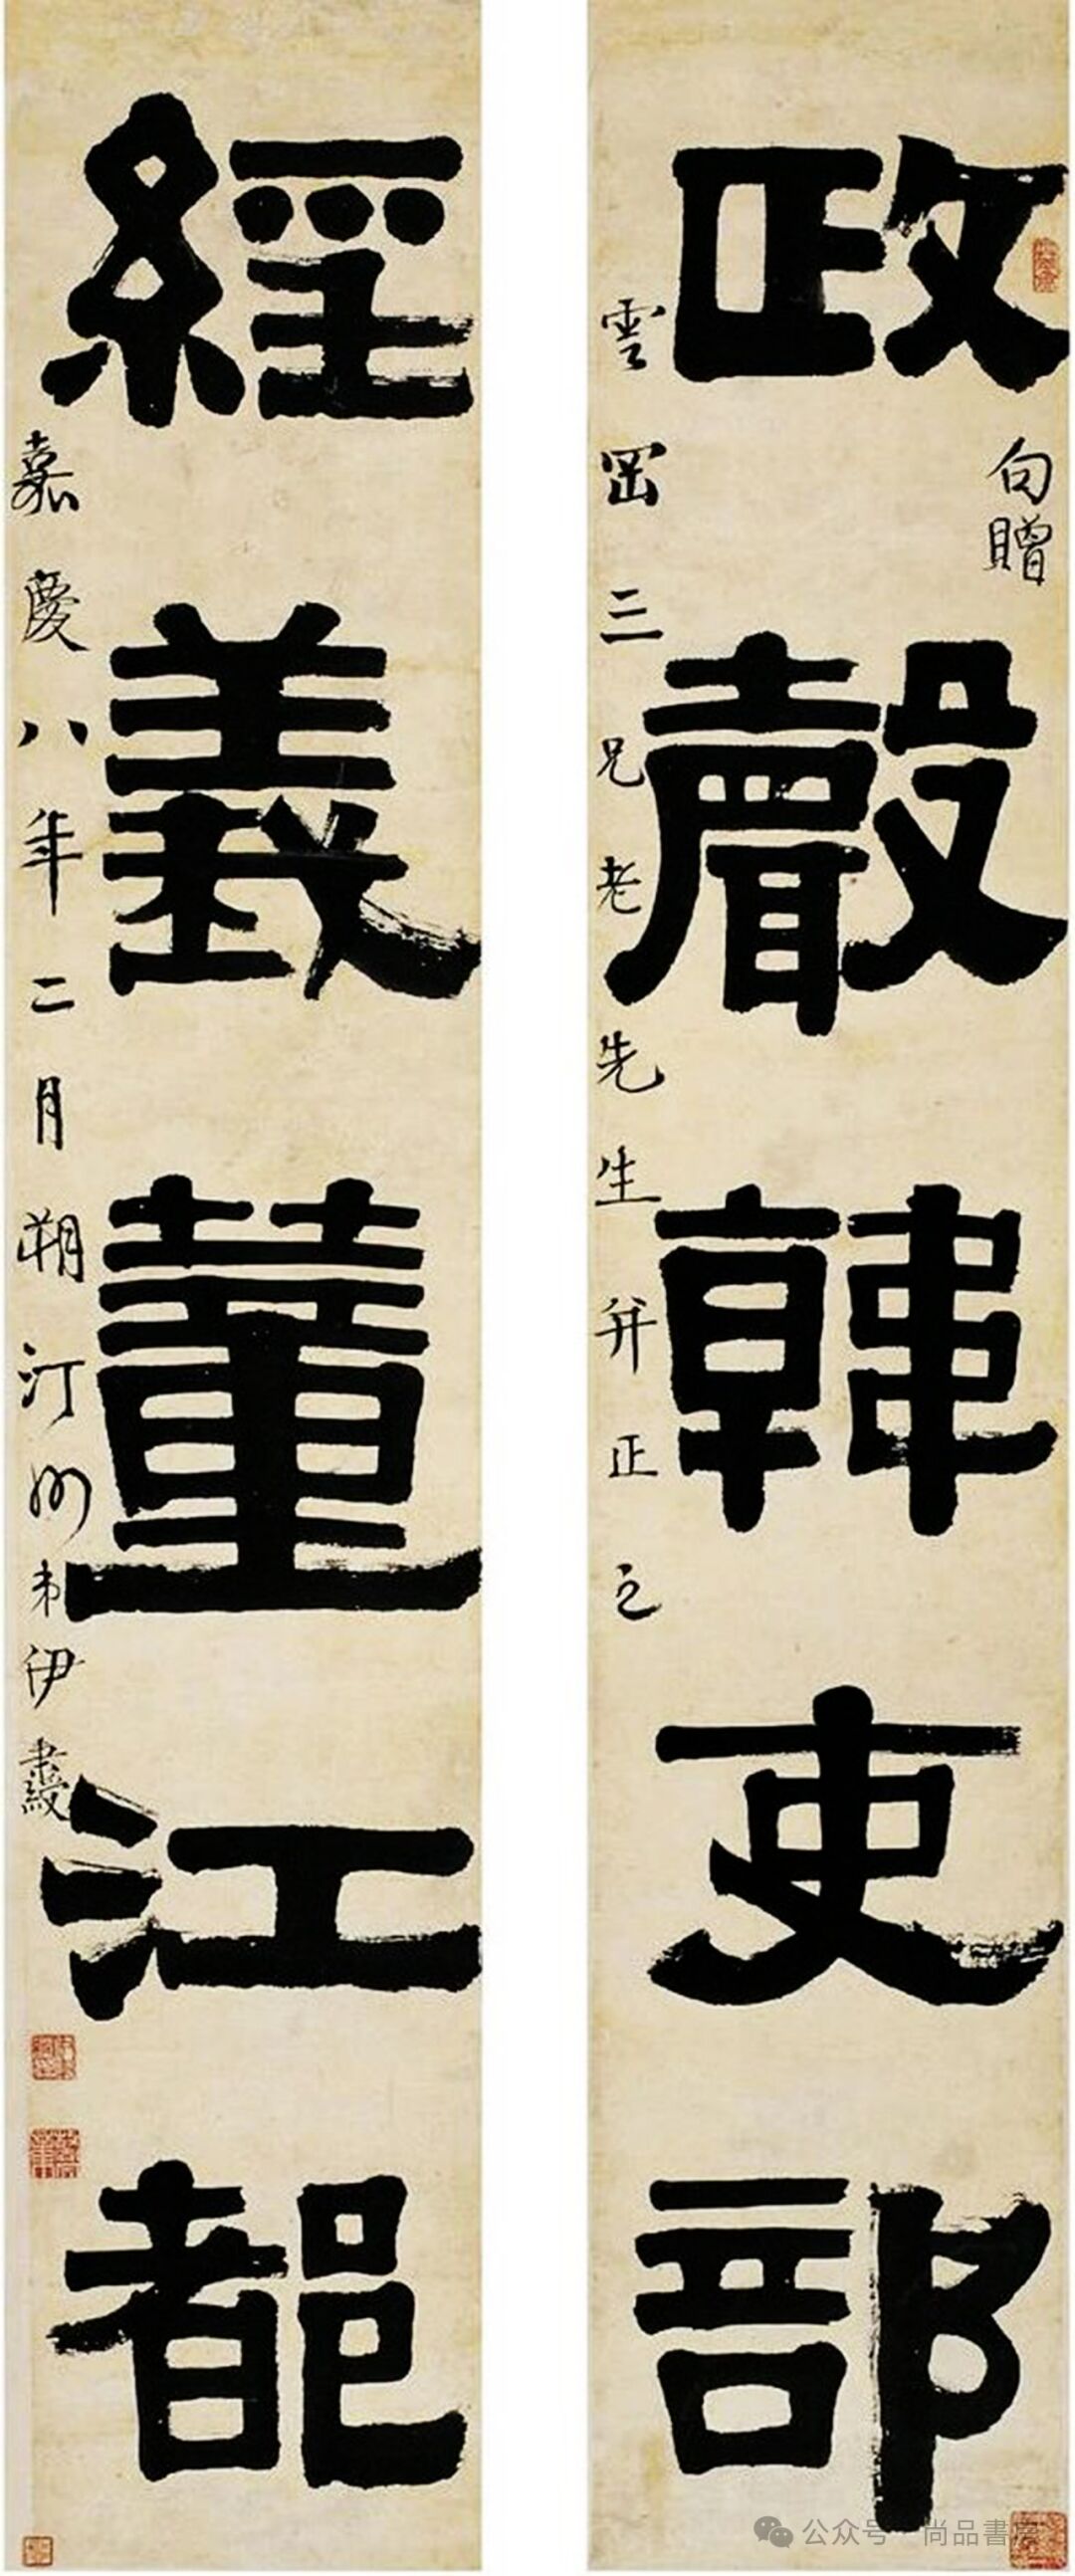 政聲韓吏部
句贈
雲岡三兄老先生并正之
經義董江都
嘉慶八年二月朔汀州弟伊秉綬
公众号·尚品書房